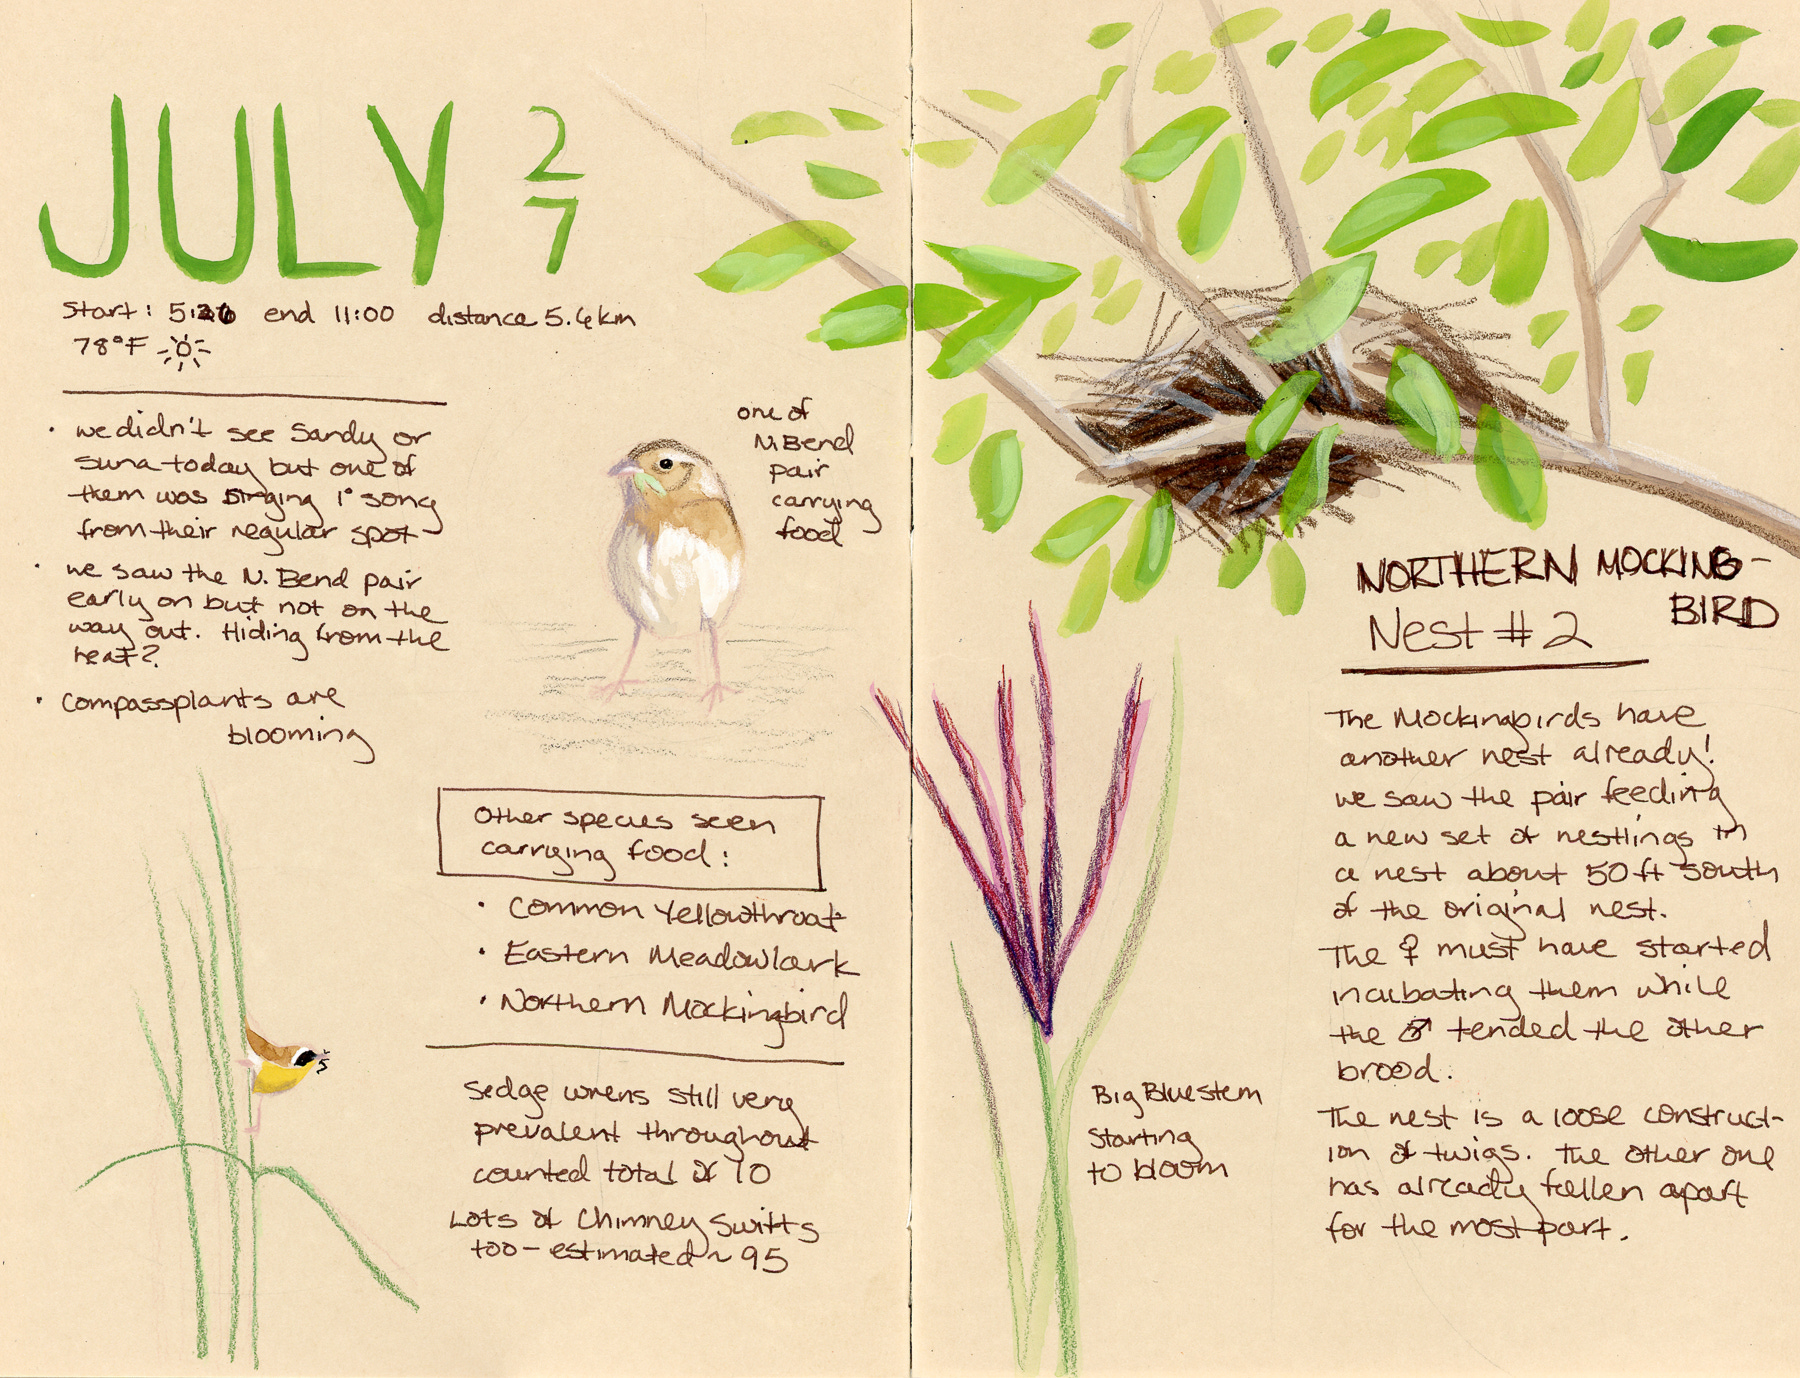 JULY 27
Start: 5:20 end 11:00 distance 5.6km
78°F
• we didn't see Sandy or
Suna today but one of
them was singing 1° song
from their regular spot
• we saw the N. Bend pair
early on but not on the
way out. Hiding from the
heat?
• Compassplants are
blooming
one of
N. Bend
pair
carrying
food
Other species seen
carrying food:
• Common Yellowthroat
• Eastern Meadowlark
• Northern Mockingbird
Sedge wrens still very
prevalent throughout
counted total of 10
Lots of Chimney Swifts
too - estimated ~ 95
NORTHERN MOCKING-
BIRD
Nest # 2
The Mockingbirds have
another nest already!
we saw the pair feeding
a new set of nestlings in
a nest about 50 ft south
of the original nest.
The ♀ must have started
incubating them while
the ♂ tended the other
brood.
The nest is a loose construct-
ion of twigs. The other one
has already fallen apart
for the most part.
Big Bluestem
Starting
to bloom